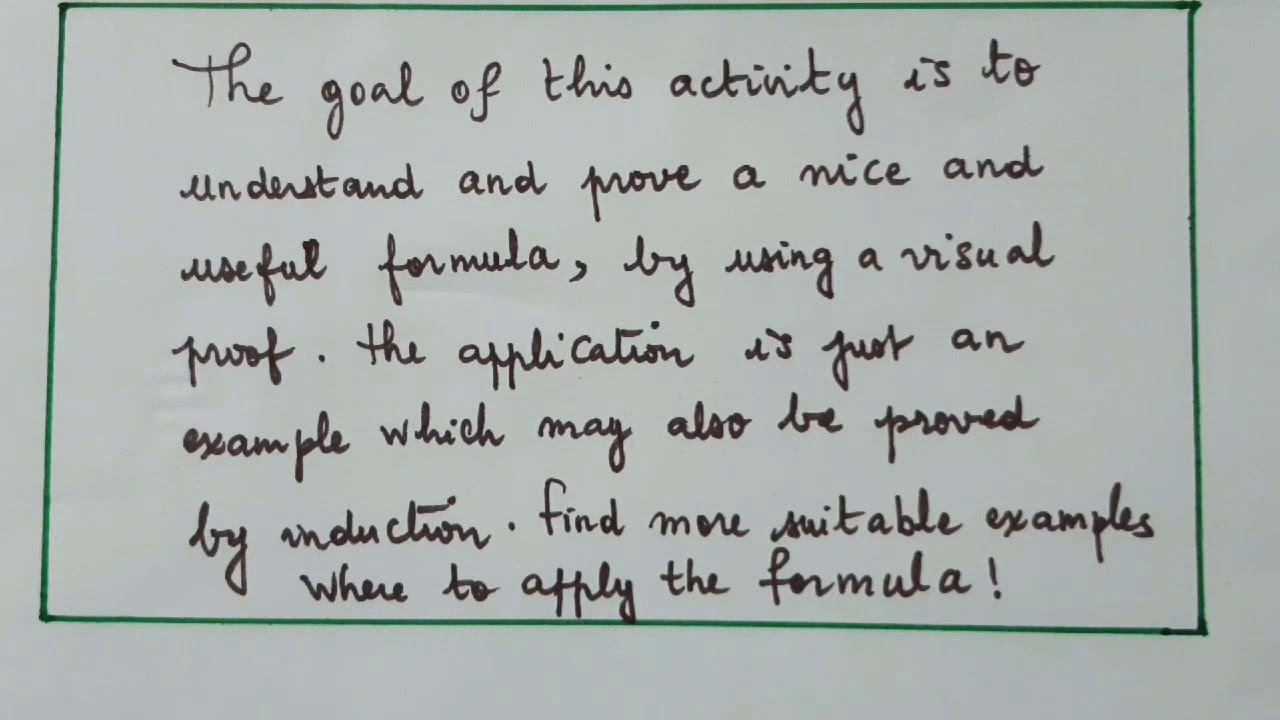 The goal of this activity is to
understand and prove a nice and
useful formula, by using a visual
proof. the application is just an
example which may also be proved
by induction. find more suitable examples
where to apply the formula!